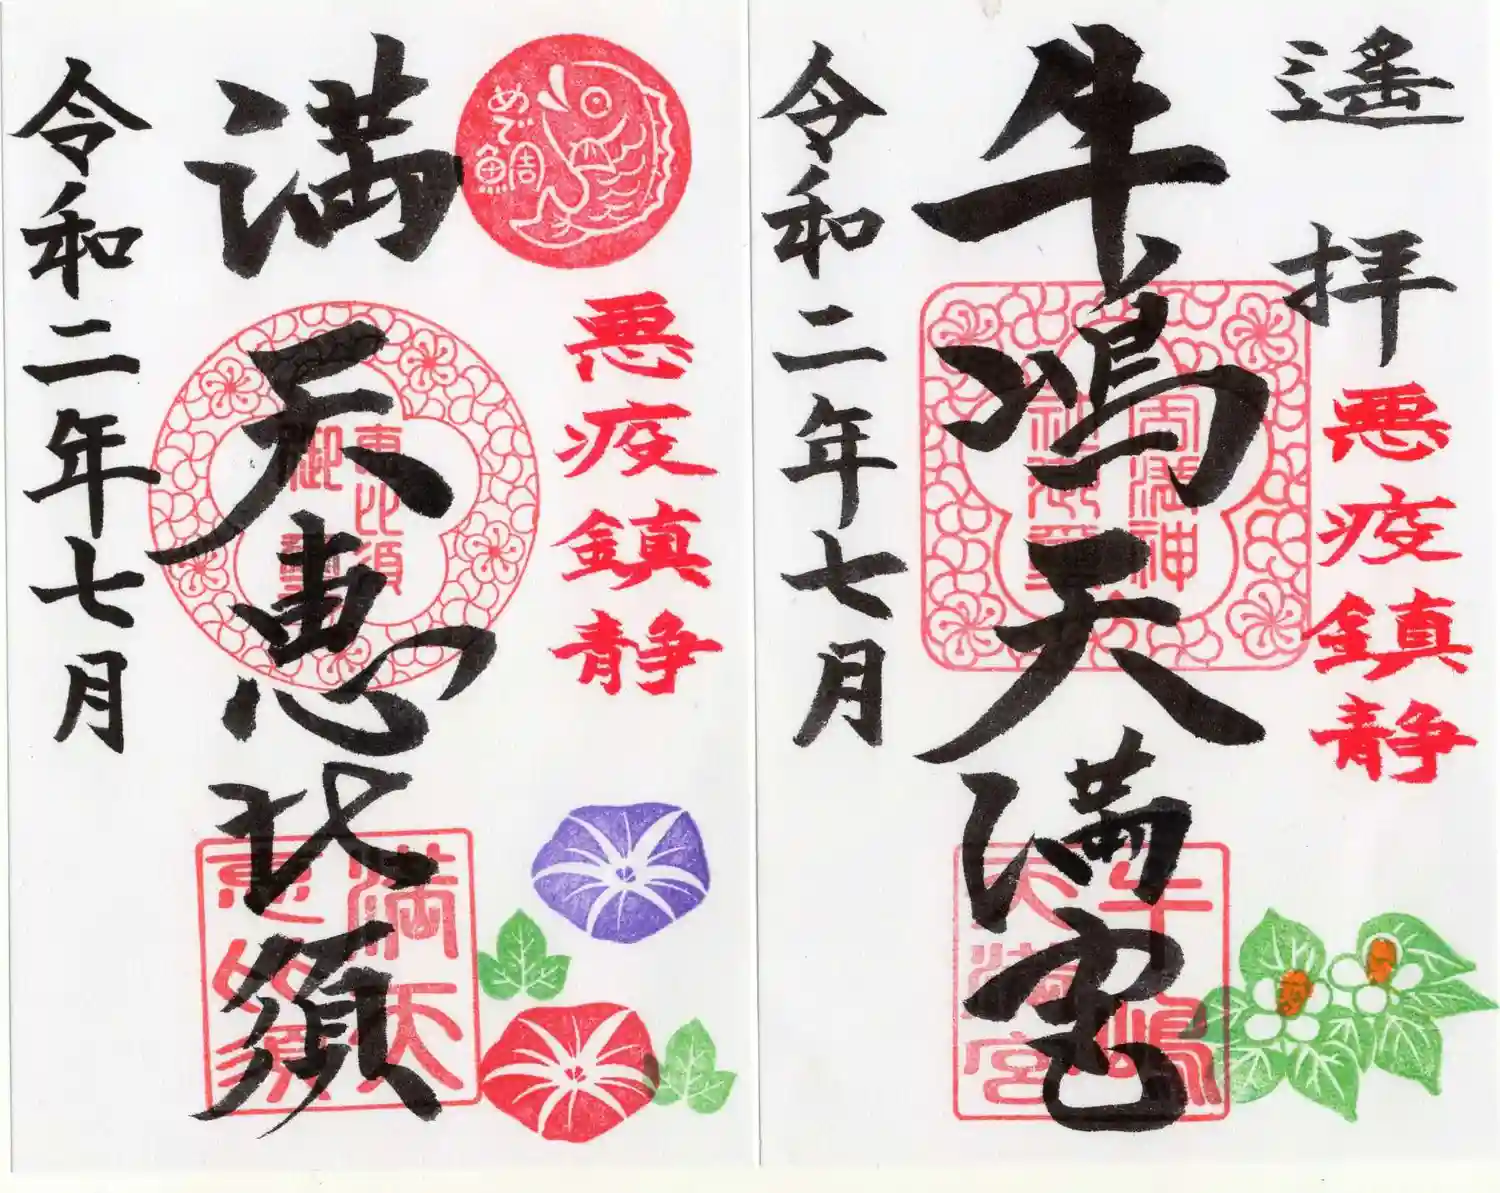 遥拝
悪疫鎮静
牛嶋天満宮
令和二年七月
牛嶋
天満宮
めで鯛
悪疫鎮静
満天恵比須
令和二年七月
恵比須
御璽
満天
恵比須